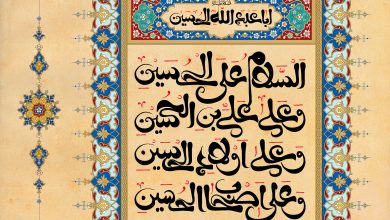 اباعبدالله الحسین
السلام علی الحسین
وعلی علی بن الحسین
وعلی اولاد الحسین
وعلی اصحاب الحسین